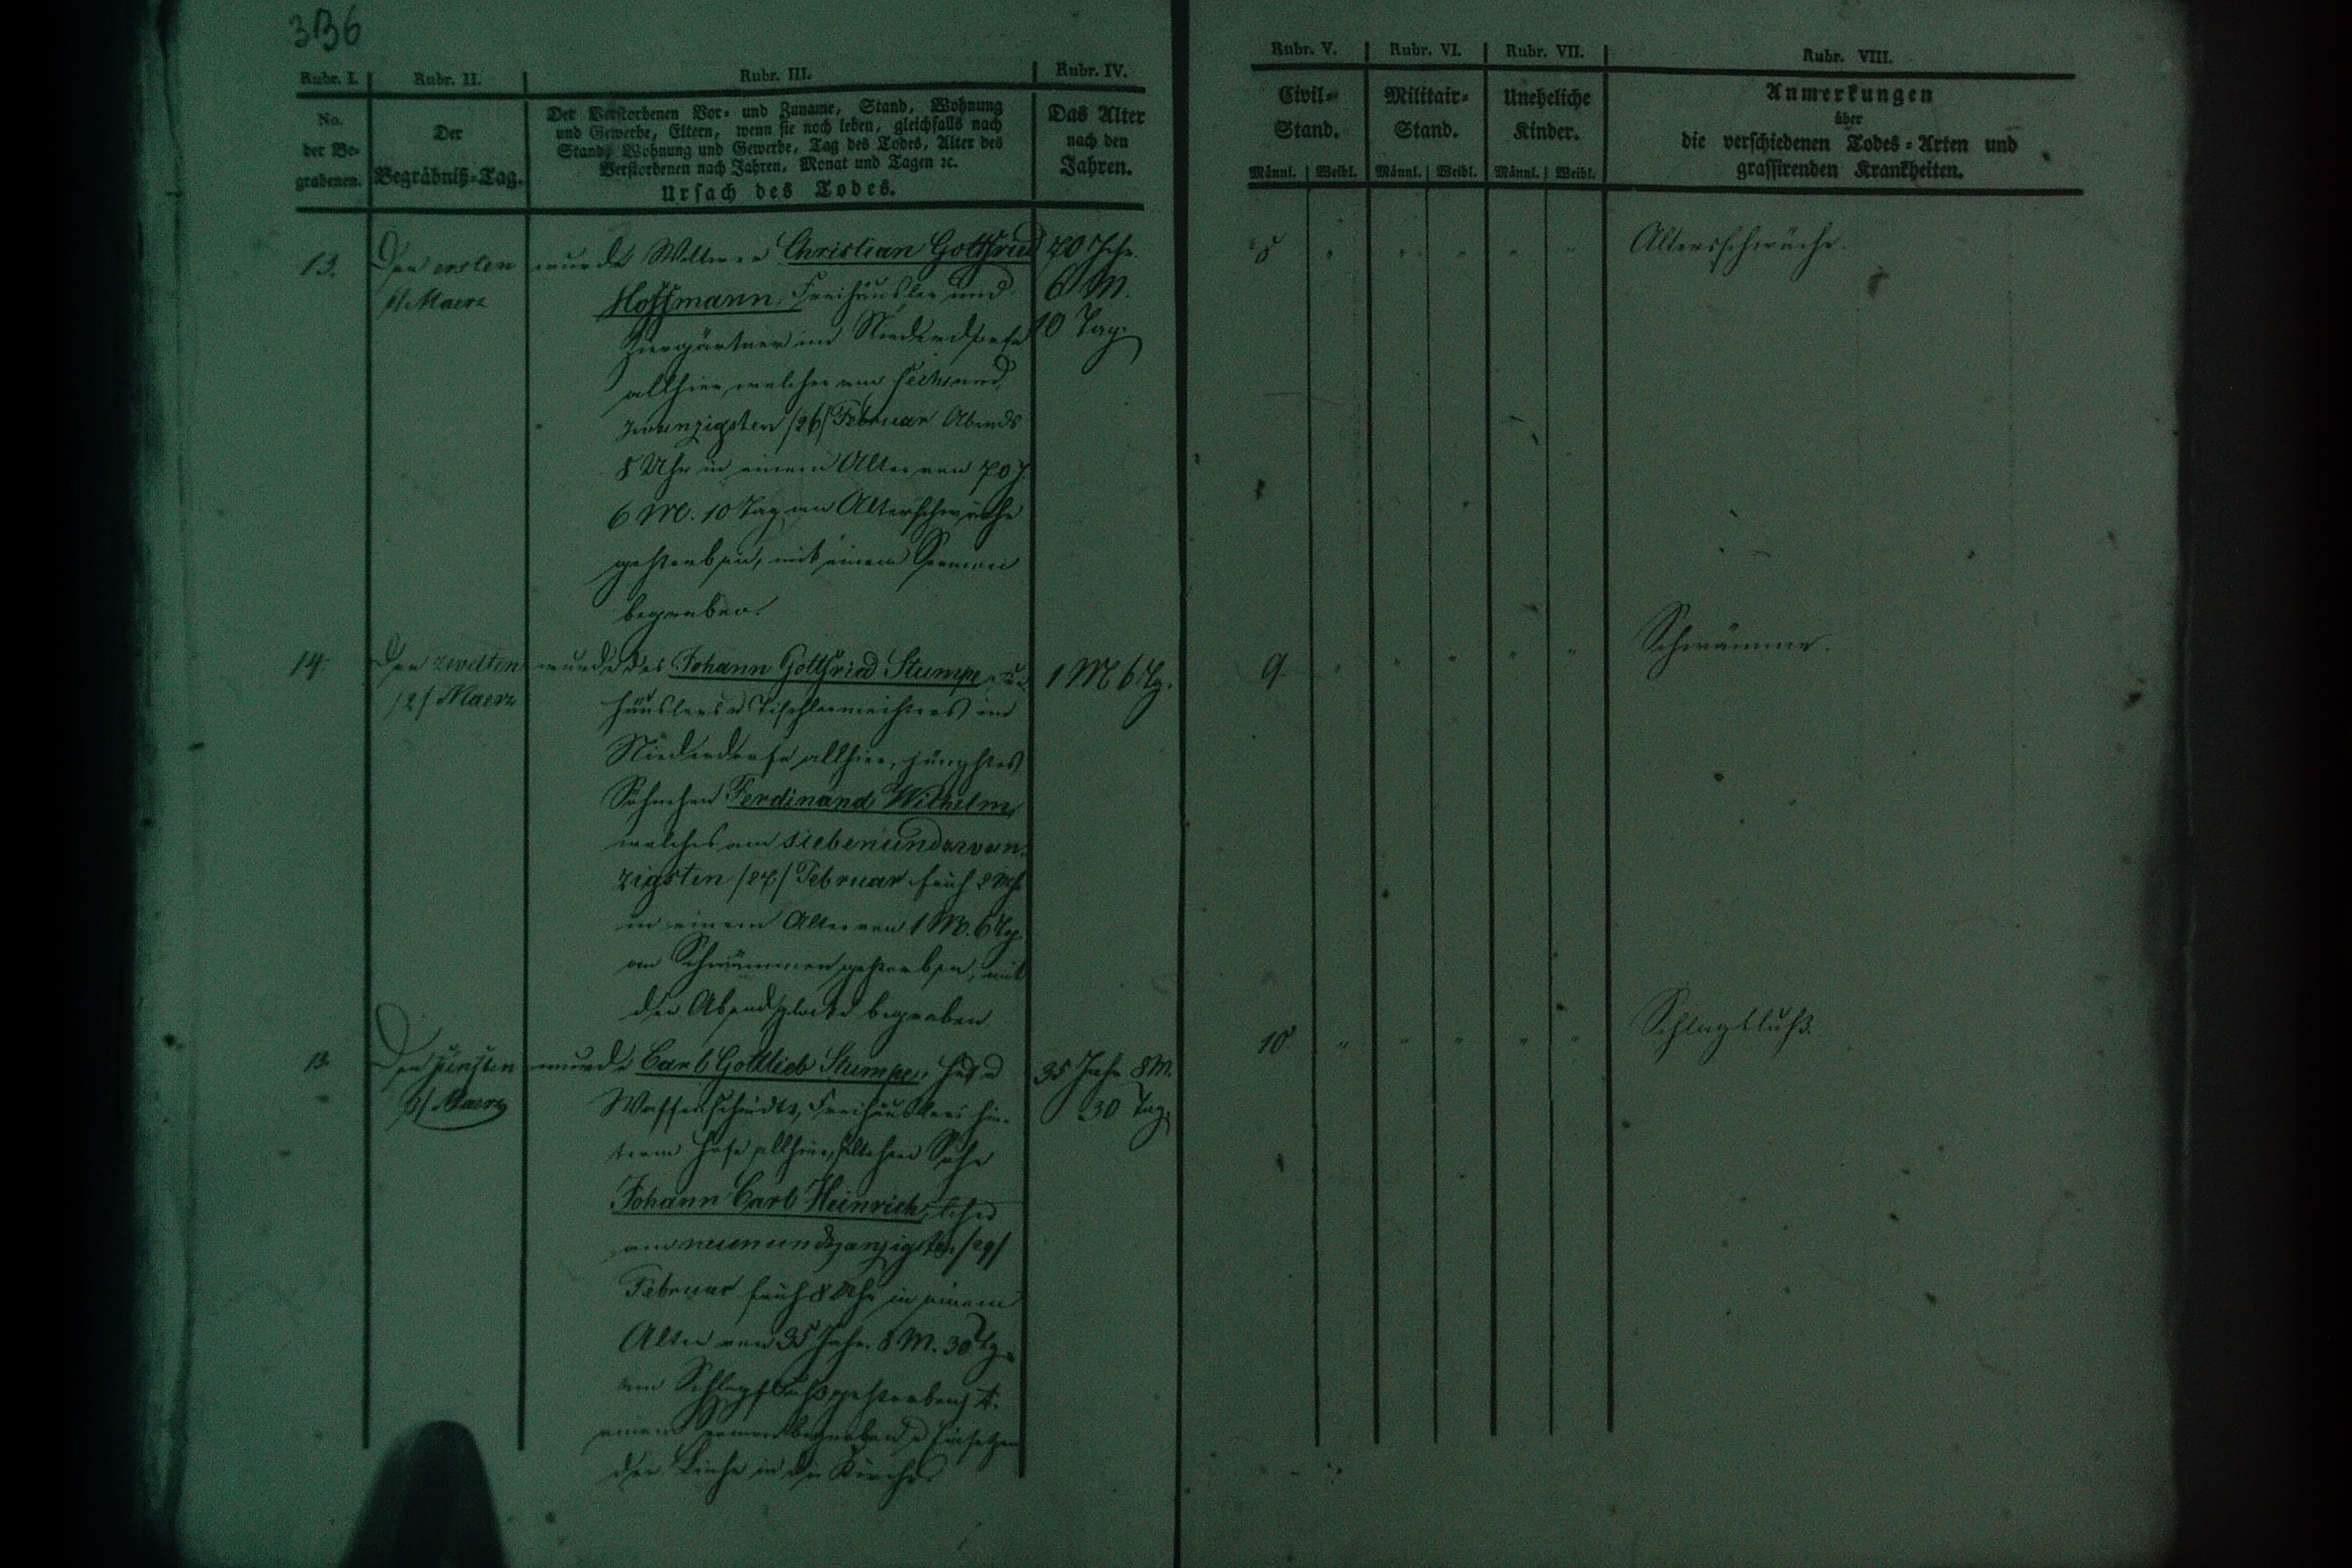 336
Rubr. I. Rubr. II. Rubr. III. Rubr. IV. Rubr. V. Rubr. VI. Rubr. VII. Rubr. VIII.
No. der Be- grabenen.
Der Begräbniß-Tag.
Der Verstorbenen Vor- und Zuname, Stand, Wohnung
und Gewerbe, Eltern, wenn sie noch leben, gleichfalls nach
Stand, Wohnung und Gewerbe, Tag des Todes, Alter des
Verstorbenen nach Jahren, Monat und Tagen ꝛc.
Ursach des Todes.
Das Alter
nach den
Jahren.
Civil-
Stand.
Männl. Weibl.
Militair-
Stand.
Männl. Weibl.
Uneheliche
Kinder.
Männl. Weibl.
Anmerkungen
über
die verschiedenen Todes-Arten und
grassirenden Krankheiten.
13.
Den ersten
/1/ Maerz
wurde Christian Gottfried
Hoffmann, Freihäusler und
Ziergärtner im Niederdorfe
allhier, welcher am sechsund
zwanzigsten /26/ Februar Abends
8 Uhr in einem Alter von 70 J.
6 M. 10 Tag. an Altersschwäche
gestorben, mit einem Sermon
begraben.
70 Jahr.
6 M.
10 Tag.
8
Altersschwäche.
14.
Den zweiten
/2/ Maerz
wurde des Johann Gottfried Stumpe,
häuslers u Tischlermeisters im
Niederdorfe allhier, jüngstes
Söhnchen Ferdinand Wilhelm,
welches am siebenundzwan-
zigsten /27/ Februar früh 2 Uhr
in einem Alter von 1 M. 6 Tg.
an Schwämmen gestorben, mit
der Abendglocke begraben
1 M 6 Tg.
9.
Schwämme.
15.
Den fünften
/5/ Maerz
wurde Carl Gottlieb Stumpe,
Waffenschmidts, Freihäuslers hin-
term Hofe allhier, Sohn
Johann Carl Heinrich,
am neunundzwanzigsten /29/
Februar früh 8 Uhr in einem
Alter von 35 Jahr. 8 M. 30 Tg.
am Schlagfluß gestorben,
einem Sermon begraben u Einsetzen
der Leiche in die Kirche
35 Jahr 8 M.
30 Tag.
10.
Schlagfluß.